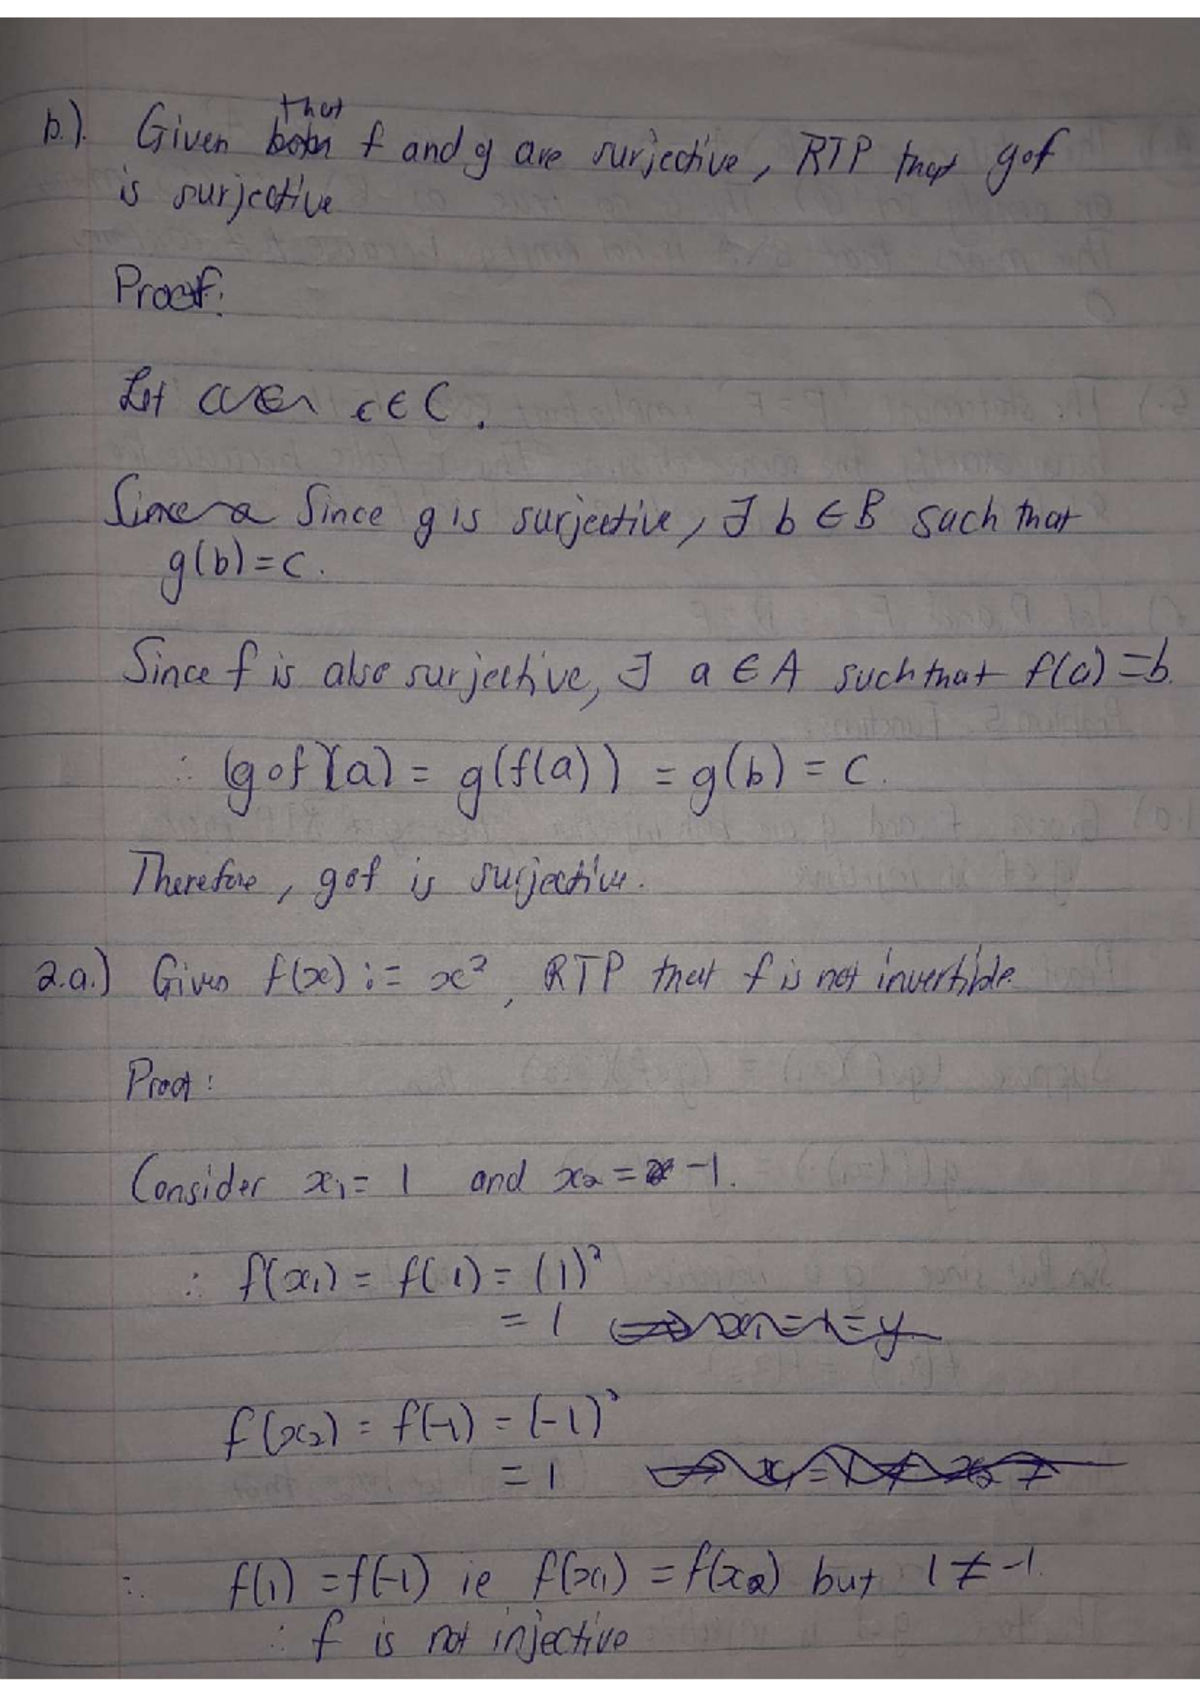 b.). Given that f and g are surjective, RTP that gof
is surjective
Proof:
Let c ∈ C.
Since g is surjective, ∃ b ∈ B such that
g(b) = c.
Since f is also surjective, ∃ a ∈ A such that f(a) = b.
∴ (gof)(a) = g(f(a)) = g(b) = c.
Therefore, gof is surjective.
2.a.) Given f(x) := x², RTP that f is not invertible.
Proof:
Consider x₁ = 1 and x₂ = -1.
∴ f(x₁) = f(1) = (1)²
= 1
f(x₂) = f(-1) = (-1)²
= 1
∴ f(1) = f(-1) ie f(x₁) = f(x₂) but 1 ≠ -1.
∴ f is not injective